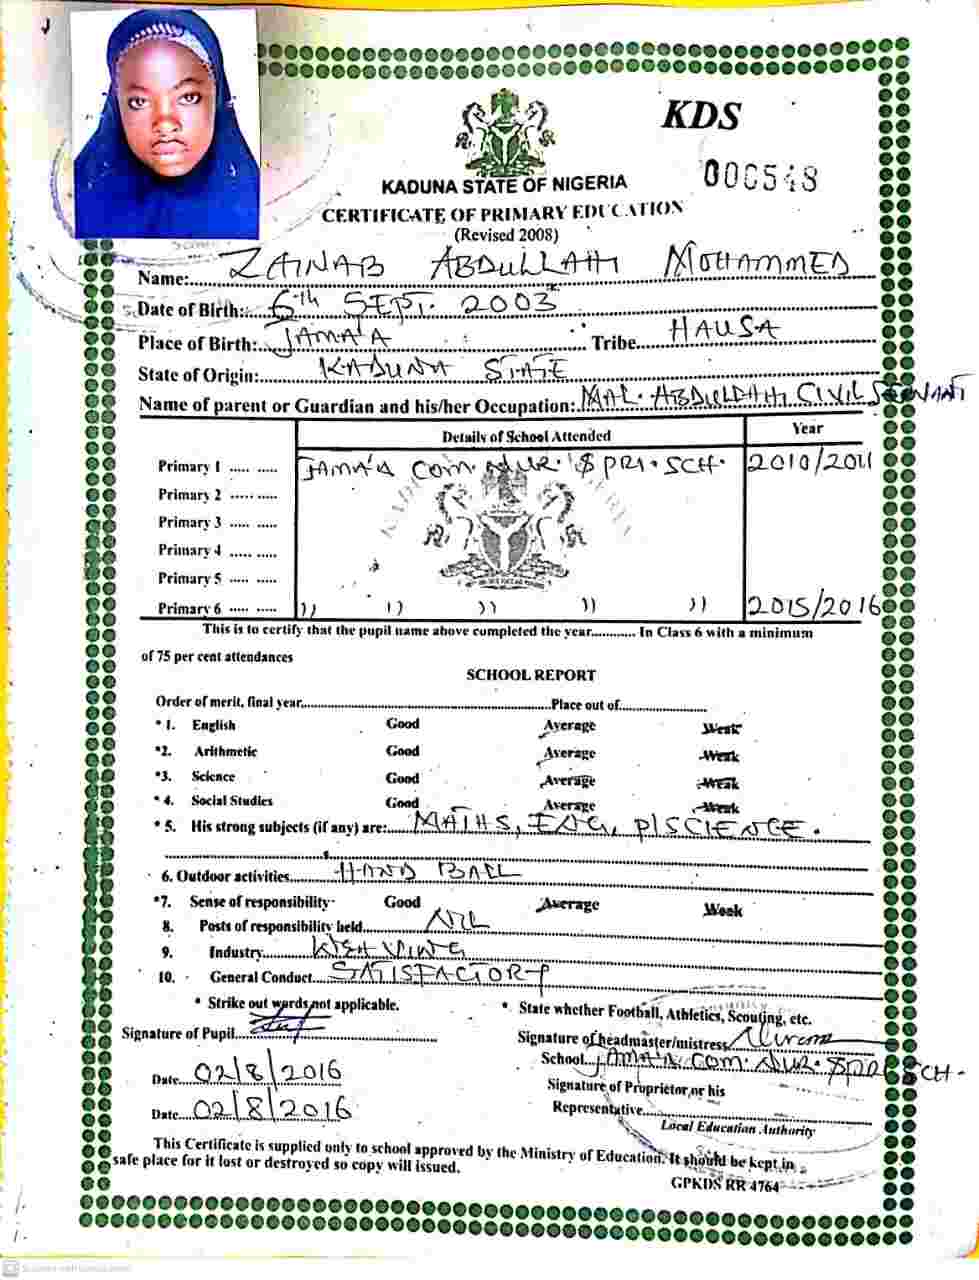 KDS
000548
KADUNA STATE OF NIGERIA
CERTIFICATE OF PRIMARY EDUCATION
(Revised 2008)
Name: ZAINAB ABDULLAHI MOHAMMED
Date of Birth: 6th SEPT. 2003
Place of Birth: JAMA'A Tribe HAUSA
State of Origin: KADUNA STATE
Name of parent or Guardian and his/her Occupation: MAL. ABDULLAHI CIVIL SERVANT
Details of School Attended Year
Primary 1 ..... ..... JAMA'A COM. NUR. & PRI. SCH. 2010/2011
Primary 2 ..... .....
Primary 3 ..... .....
Primary 4 ..... .....
Primary 5 ..... .....
Primary 6 ..... ..... ,, ,, ,, ,, ,, 2015/2016
This is to certify that the pupil name above completed the year............ In Class 6 with a minimum
of 75 per cent attendances
SCHOOL REPORT
Order of merit, final year.......Place out of.......
* 1. English Good Average Weak
*2. Arithmetic Good Average Weak
*3. Science Good Average Weak
* 4. Social Studies Good Average Weak
* 5. His strong subjects (if any) are: MATHS, ENG, P/SCIENCE.
6. Outdoor activities HAND BALL
*7. Sense of responsibility Good Average Week
8. Posts of responsibility held NIL
9. Industry WEAVING
10. General Conduct SATISFACTORY
* Strike out words not applicable.
* State whether Football, Athletics, Scouting, etc.
Signature of Pupil
Signature of headmaster/mistress
School JAMA'A COM. NUR. & PRI SCH.
Date 02/8/2016
Signature of Proprietor, or his
Date 02/8/2016
Representative
Local Education Authority
This Certificate is supplied only to school approved by the Ministry of Education. It should be kept in
safe place for it lost or destroyed so copy will issued.
GPKDS RR 4764